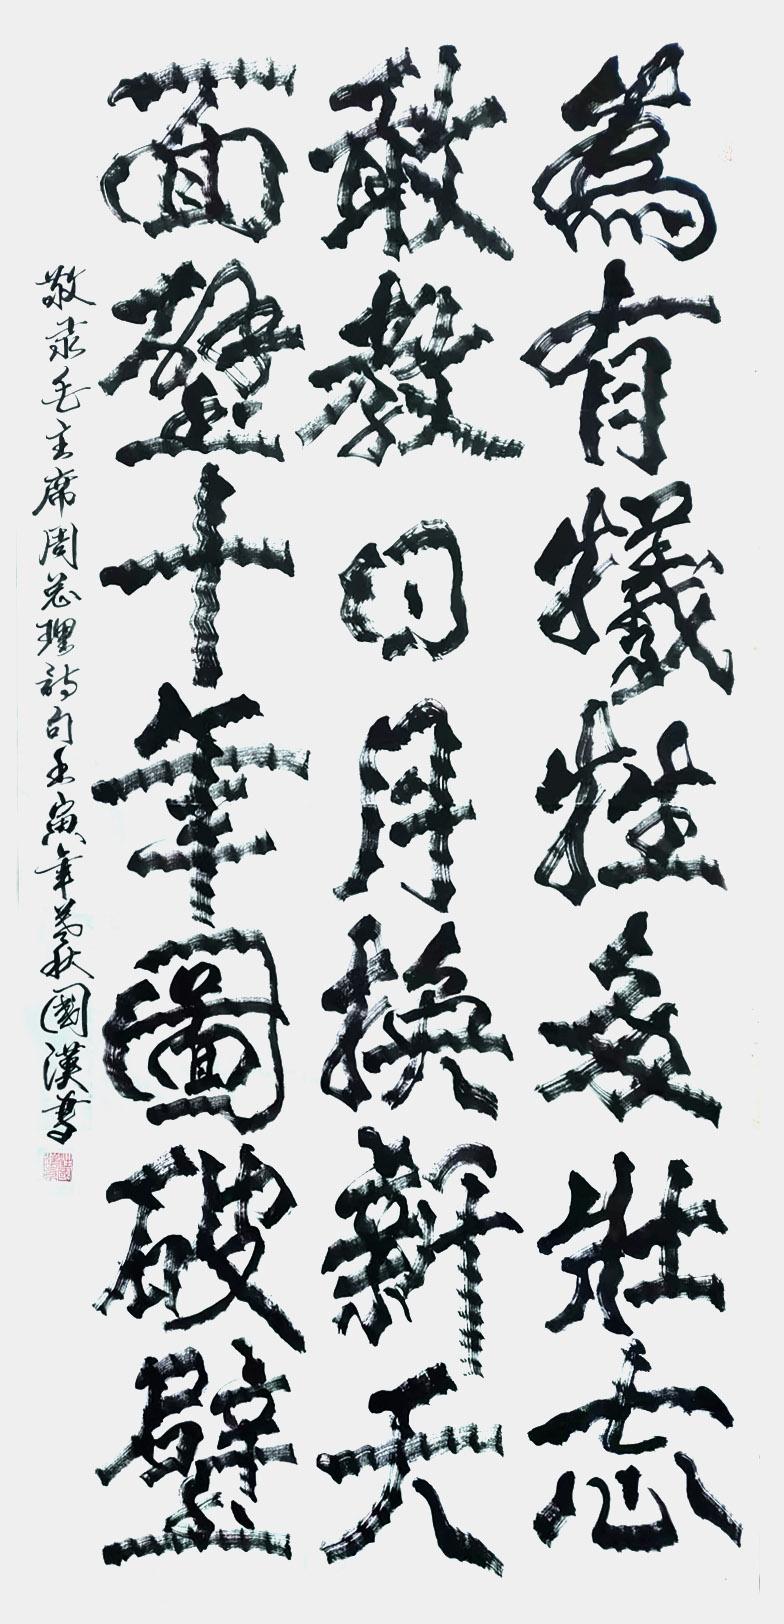 為有犧牲多壮志
敢教日月換新天
面壁十年圖破壁
敬录毛主席周总理詩句壬寅年募秋國漢書